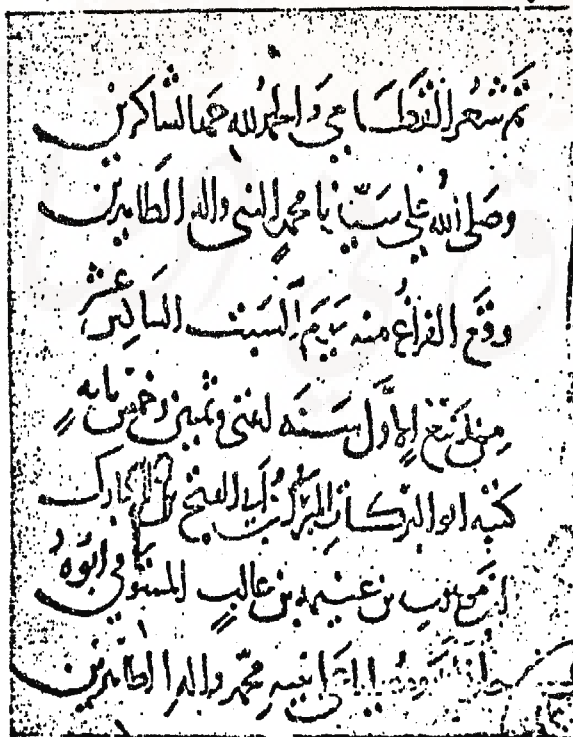 تم شعر القطامي والحمد لله حمد الشاكرين
وصلى الله على سيدنا محمد النبي واله الطاهرين
وقع الفراغ منه يوم السبت السادس عشر
من ربيع الاول سنة اثنتي وثمنين وخمس مايه
كتبه ابو البركات المبارك بن ابي الفتح بن المبارك
ابن موهوب بن غنيمه بن غالب المستوفي ابوه
نبيه محمد واله الطاهرين